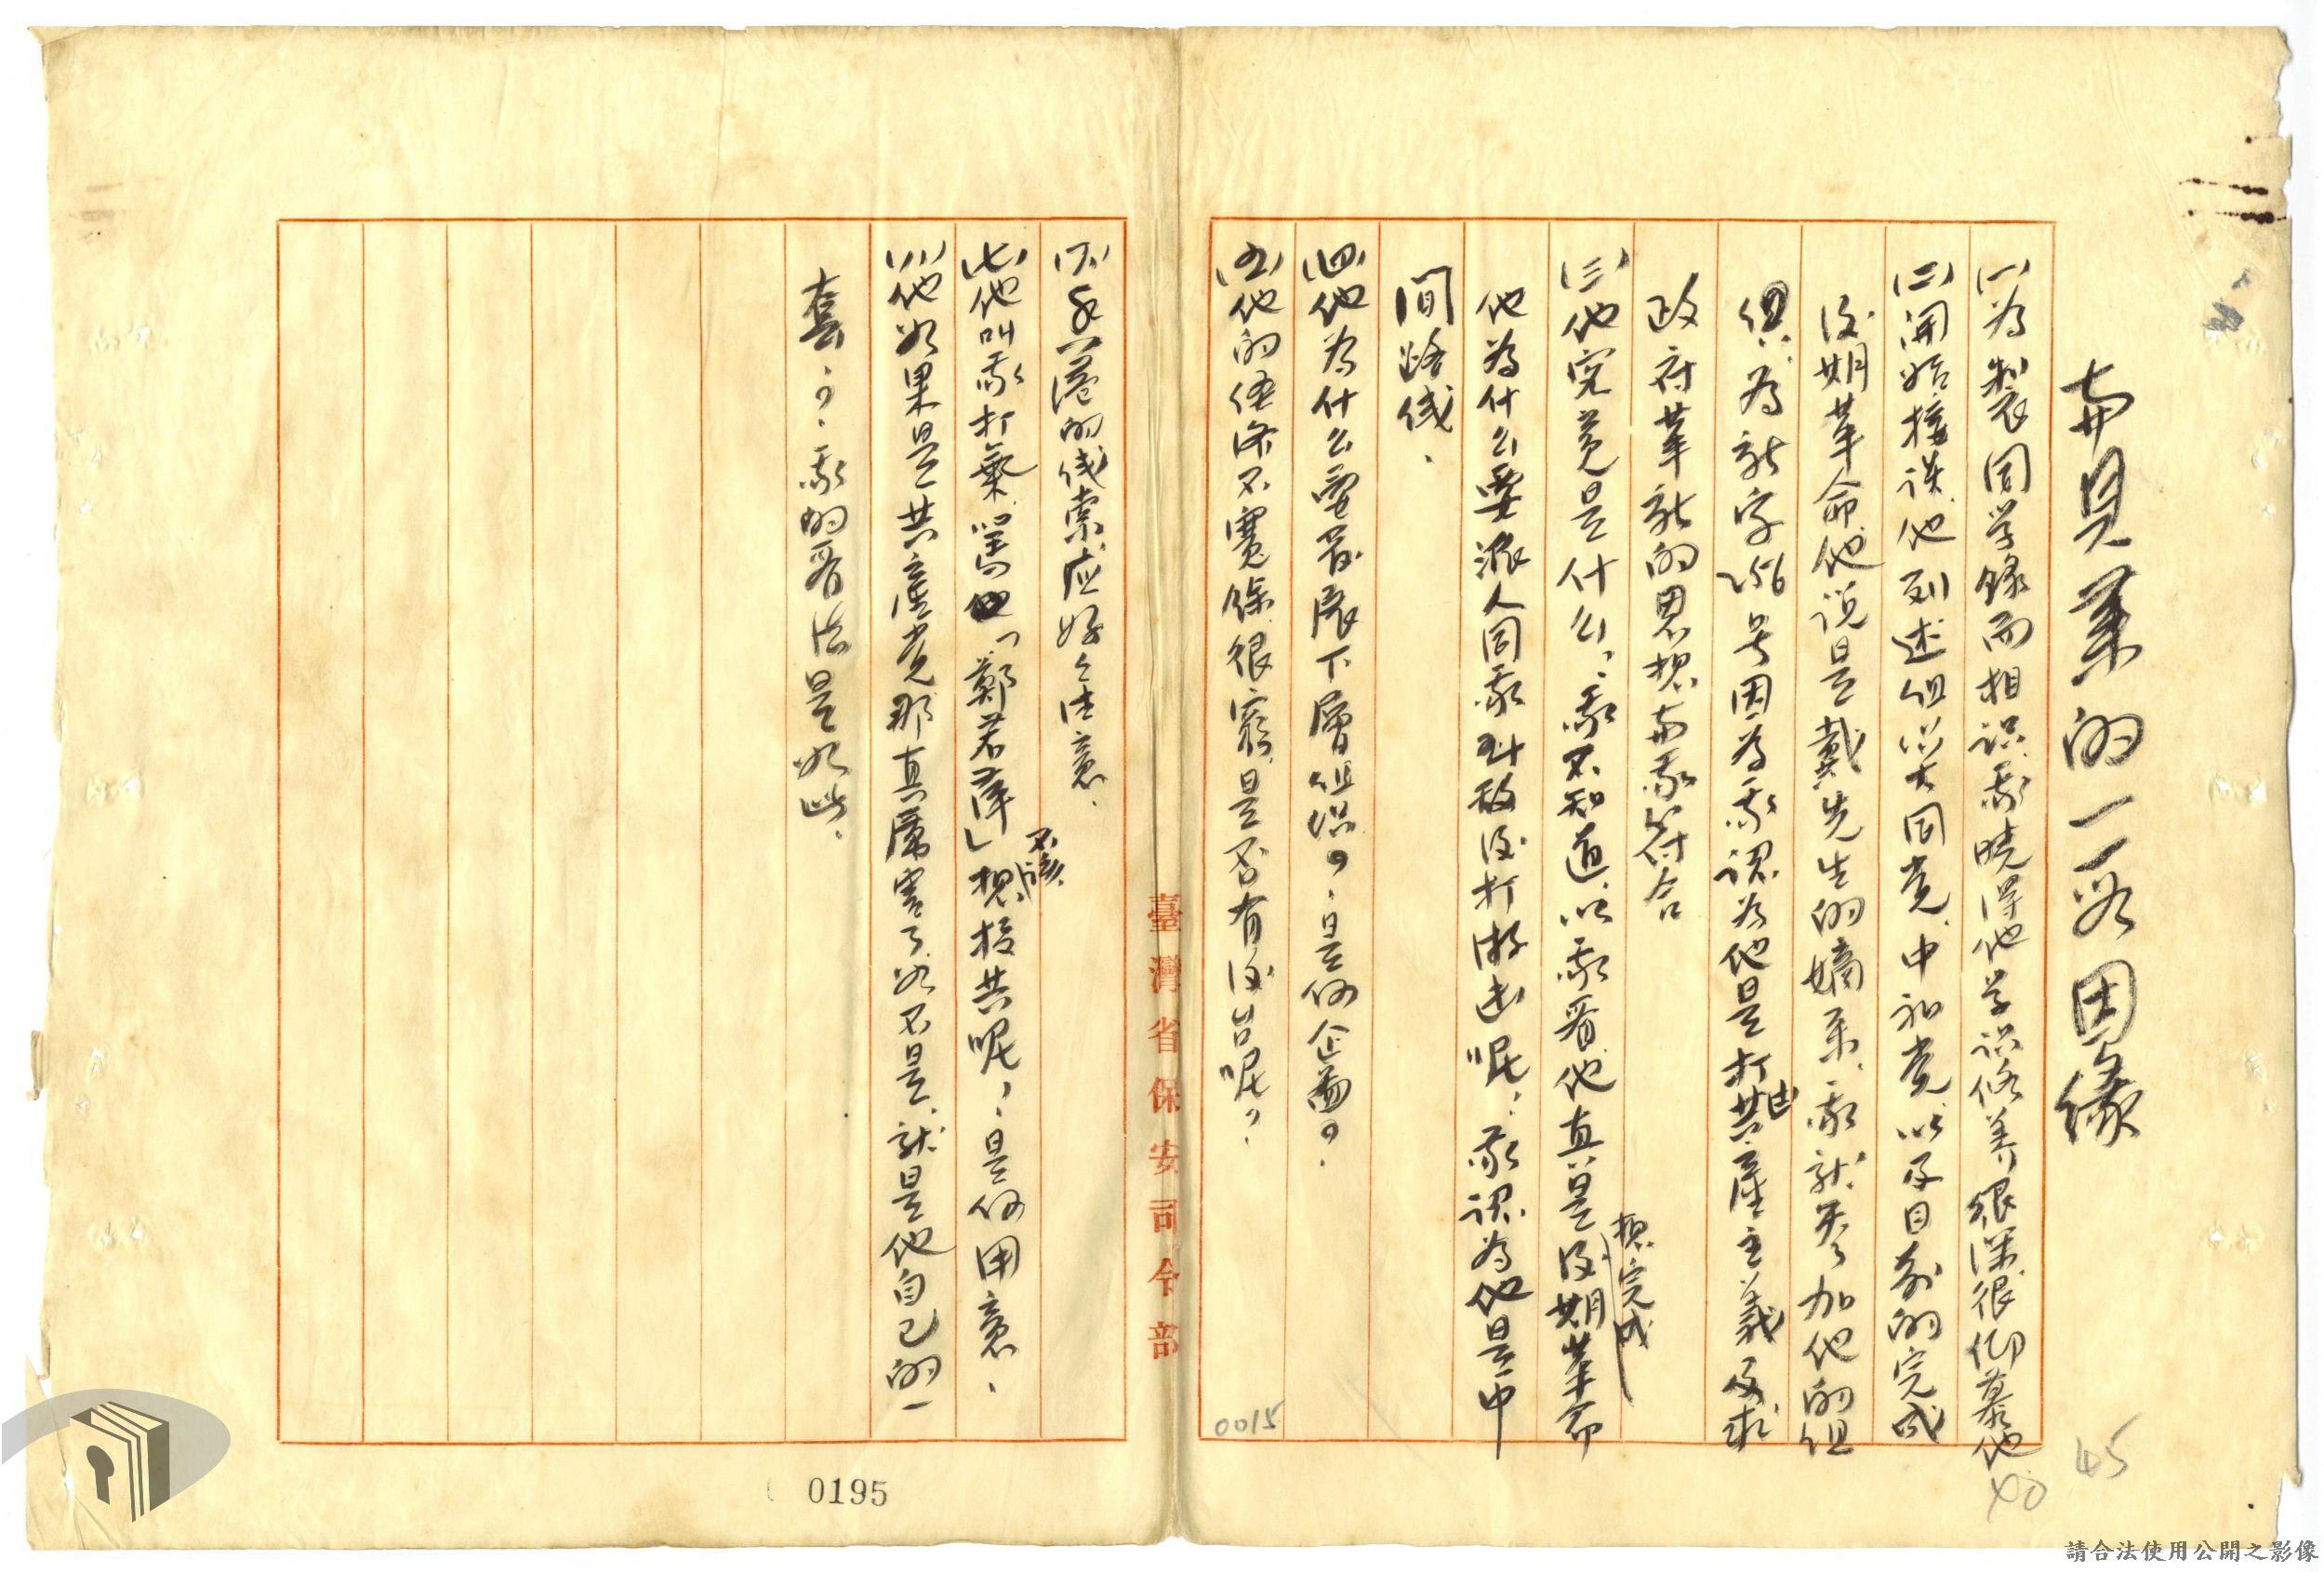 與貝業的一段因緣
(一)為製同学錄而相识.我曉得他学识修养很深.很仰慕他
(二)開始接谈.他列述组织大同党.中和党.以及目前的完成
後期革命.他说是戴先生的嫡系.我就参加他的组
织.為新字256号因為我認為他是打击共產主義及求
政府革新的思想.与我符合
(三)他究竟是什么,我不知道.以我看他真是想完成後期革命
他為什么要派人同我到敌後打游击呢,我認為他是中
間路线.
(四)他為什么要發展下層组织?是何企圖?
(五)他的經济不寬餘.很窮.是否有後台呢?
(六)香港的线索.應好好注意.
(七)他叫我打氣.罵他「鄭若萍」不該想投共呢,是何用意.
(八)他如果是共產党那真厲害了.如不是.就是他自己的一
套,?我的看法是如此.
臺灣省保安司令部
0015
0195
45
40
請合法使用公開之影像